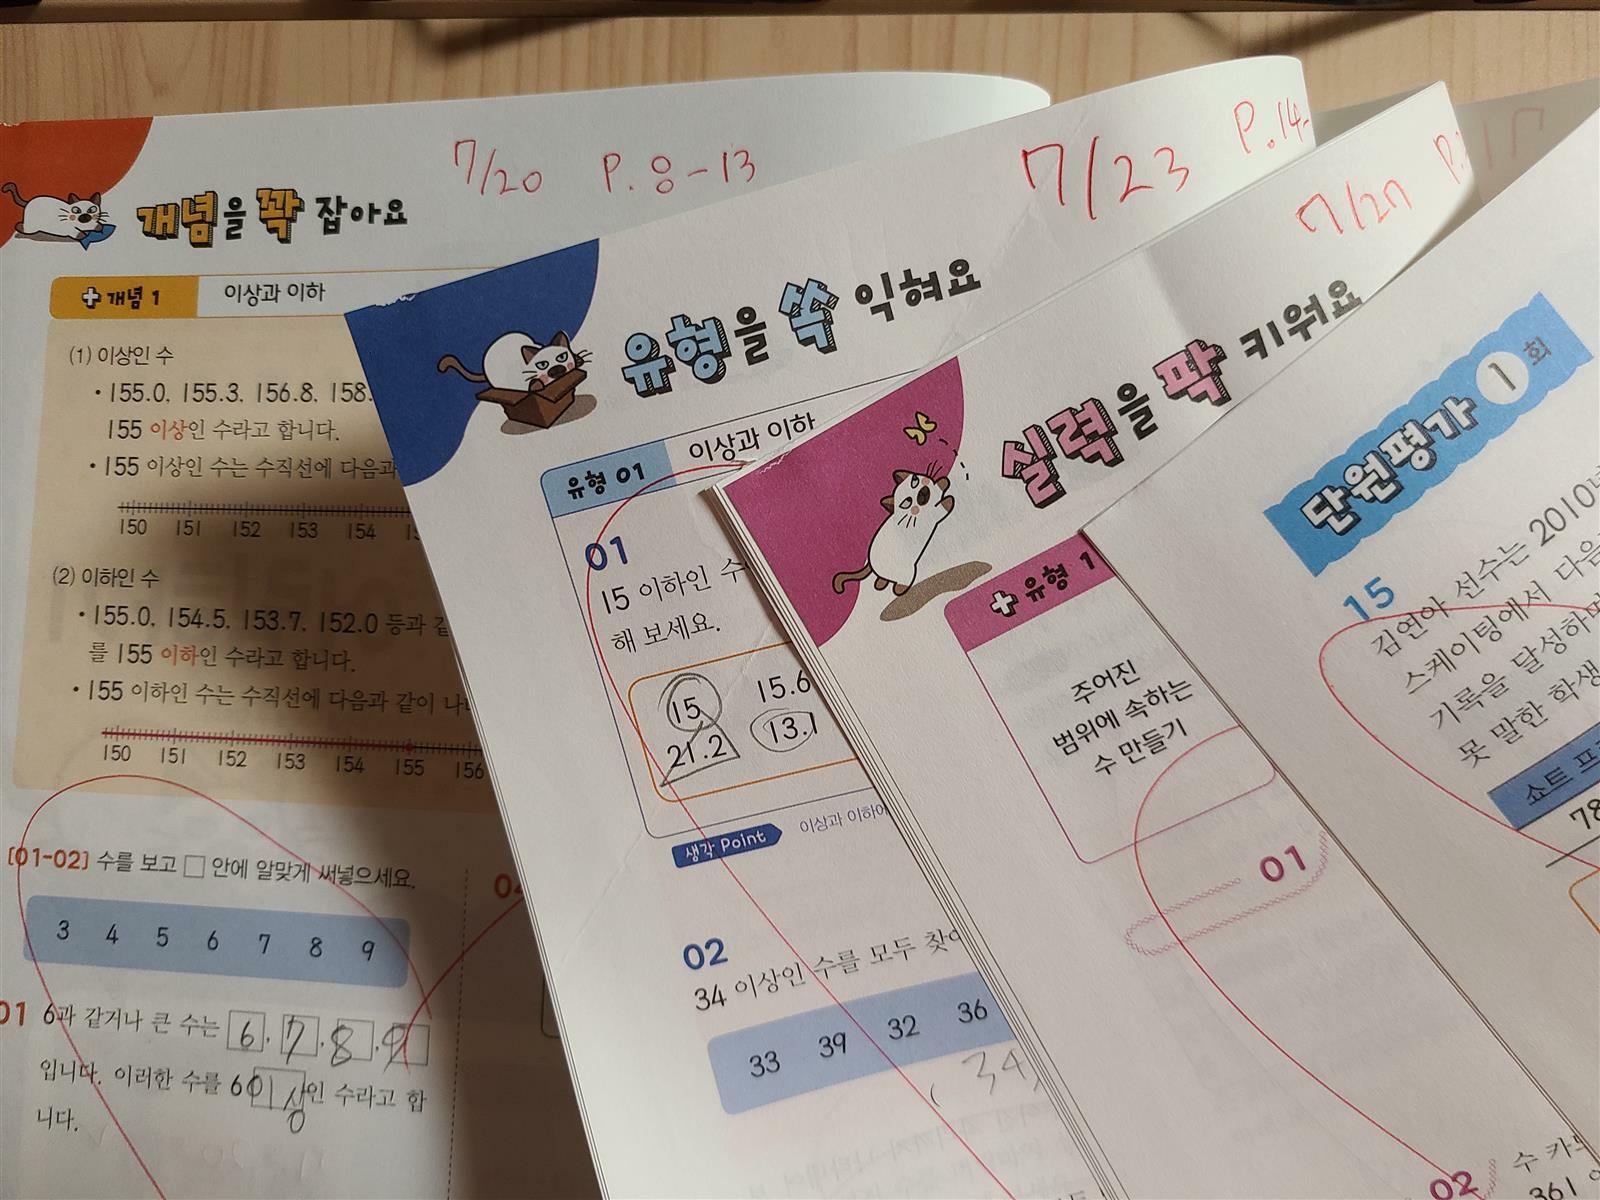 7/20 P. 8-13
개념을 꽉 잡아요
개념 1 이상과 이하
(1) 이상인 수
• 155.0, 155.3, 156.8, 158.
155 이상인 수라고 합니다.
• 155 이상인 수는 수직선에 다음과
150 151 152 153 154
(2) 이하인 수
• 155.0, 154.5, 153.7, 152.0 등과 같
를 155 이하인 수라고 합니다.
• 155 이하인 수는 수직선에 다음과 같이
150 151 152 153 154 155 156
[01-02] 수를 보고 □ 안에 알맞게 써넣으세요.
3 4 5 6 7 8 9
01 6과 같거나 큰 수는 6, 7, 8, 9
입니다. 이러한 수를 6이상인 수라고 합
니다.
7/23 P.14-
유형을 쏙 익혀요
유형 01 이상과 이하
01
15 이하인 수
해 보세요.
15 15.6
21.2 13.1
생각 Point 이상과 이하에
02
34 이상인 수를 모두 찾아
33 39 32 36
( 34,
7/27 P.
실력을 팍 키워요
유형 1
주어진
범위에 속하는
수 만들기
01
02
17
단원평가 1 회
15
김연아 선수는 2010년
스케이팅에서 다음
기록을 달성하며
못 말한 학생
쇼트 프
78
수 카드
361